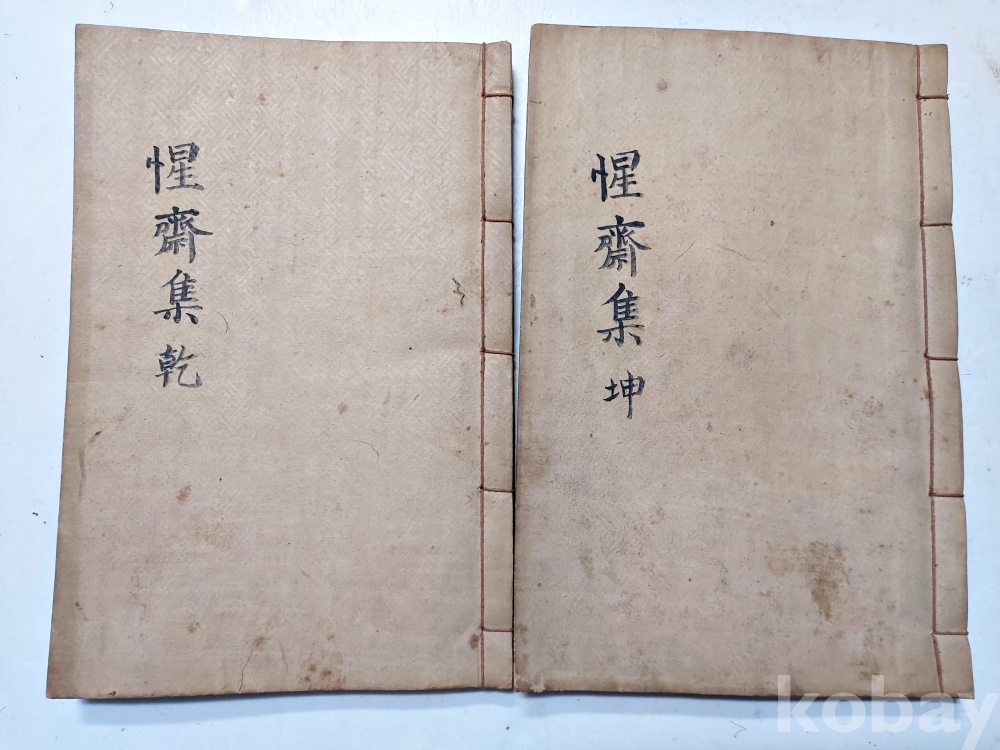 惺齋集 乾
惺齋集 坤
kobay